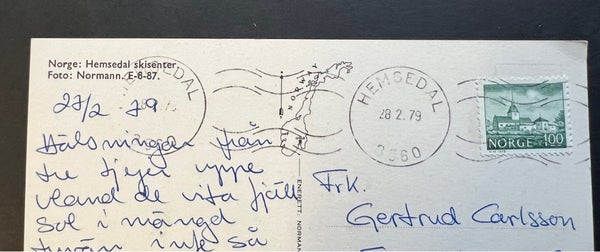 Norge: Hemsedal skisenter.
Foto: Normann. E-8-87.
HEMSEDAL
28.2.79
3560
HEMSEDAL
NORGE 100
NORGE
27/2 79
Hälsningar från
tre tjejer uppe
bland de vita fjäll
sol i mängd
inte så
ENERETT. NORMANN
Frk.
Gertrud Carlsson